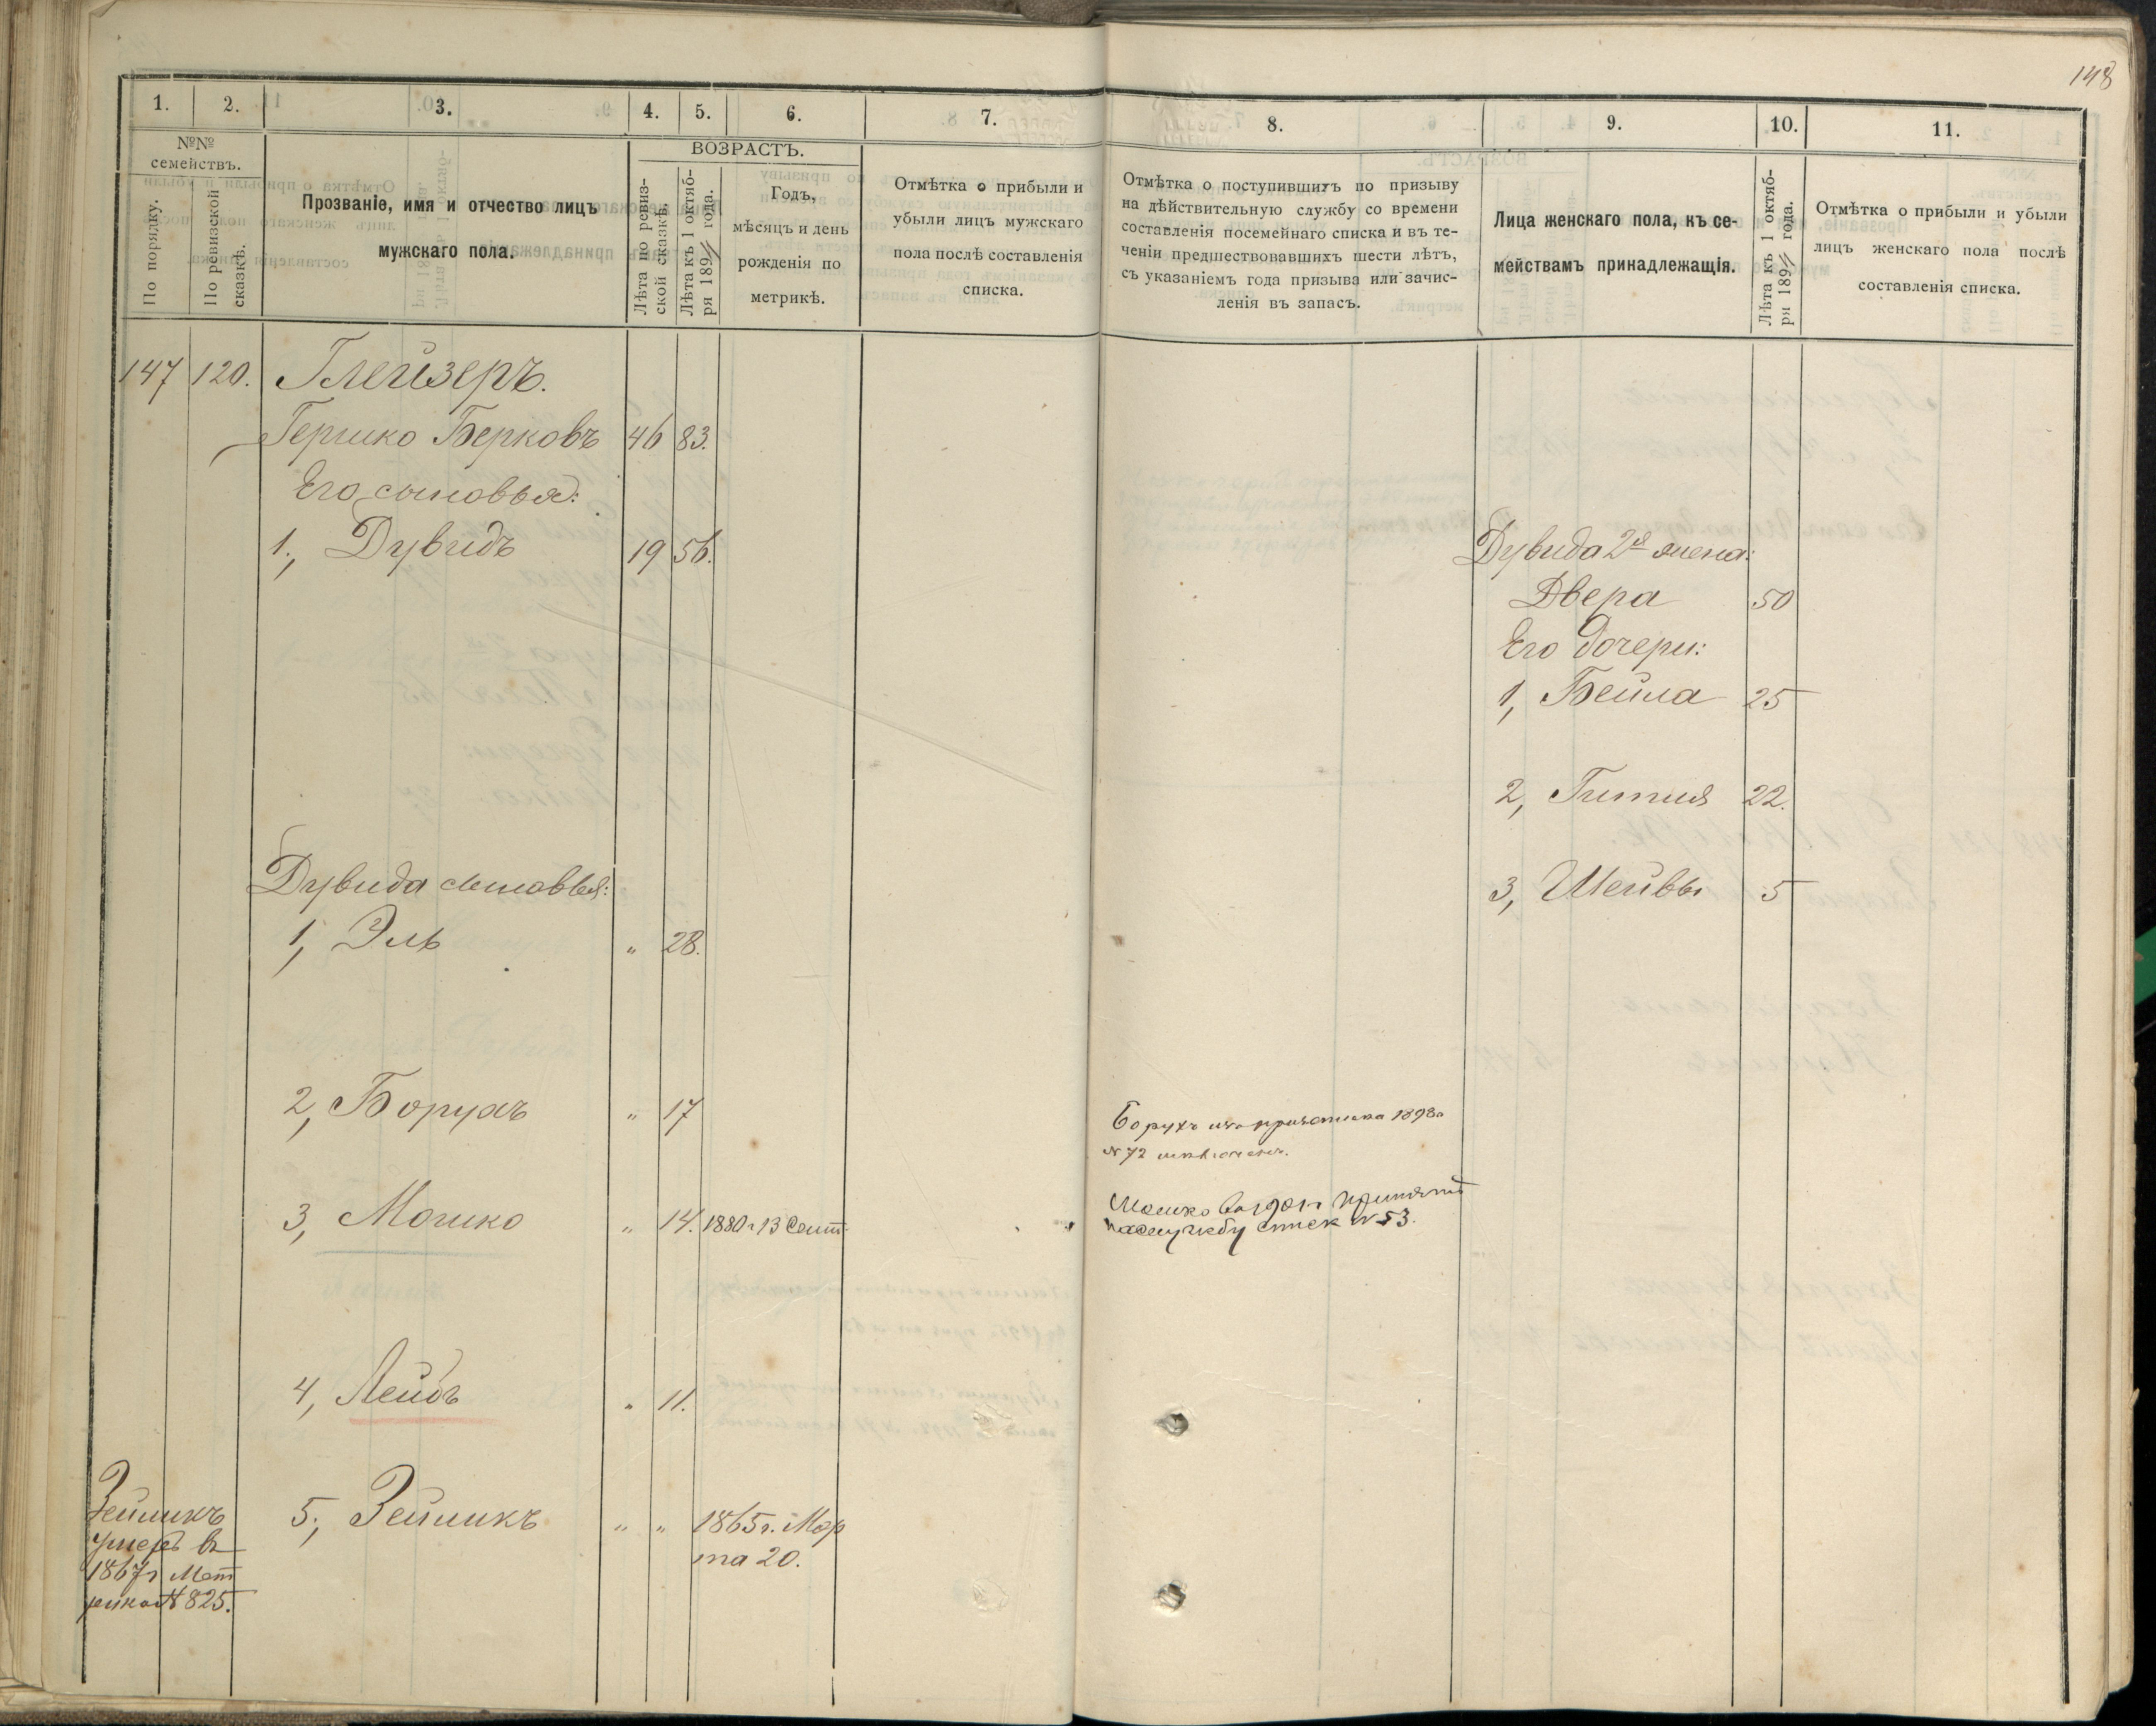 148
1. 2. 3. 4. 5. 6. 7. 8. 9. 10. 11.
№№ семействъ.
По порядку.
По ревизской сказкѣ.
Прозваніе, имя и отчество лицъ
мужскаго пола.
ВОЗРАСТЪ.
Лѣта по ревиз-
ской сказкѣ.
Лѣта къ 1 октяб-
ря 189 года.
Годъ,
мѣсяцъ и день
рожденія по
метрикѣ.
Отмѣтка о прибыли и
убыли лицъ мужскаго
пола послѣ составленія
списка.
Отмѣтка о поступившихъ по призыву
на дѣйствительную службу со времени
составленія посемейнаго списка и въ те-
ченіи предшествовавшихъ шести лѣтъ,
съ указаніемъ года призыва или зачис-
ленія въ запасъ.
Лица женскаго пола, къ се-
мействамъ принадлежащія.
Лѣта къ 1 октяб-
ря 189 года.
Отмѣтка о прибыли и убыли
лицъ женскаго пола послѣ
составленія списка.
147 120. Глейзеръ.
Гершко Берковъ 46 83.
Его сыновья:
1, Дувидъ 19 56.
Дувида 2я жена:
Двера 50
Его дочери:
1, Бейла 25
2, Гитля 22.
Дувида сыновья:
3, Шейвы 5
1, Эль " 28.
2, Борухъ " 17
Борухъ 1898г
№ 72
3, Мошко " 14. 1880г 13 Сент.
Мошко принятъ
на службу спис № 53.
4, Лейбъ " 11.
5, Зейликъ " " 1865г. Мар
та 20.
Зейликъ
умеръ въ
1867г Мет
рика № 825.